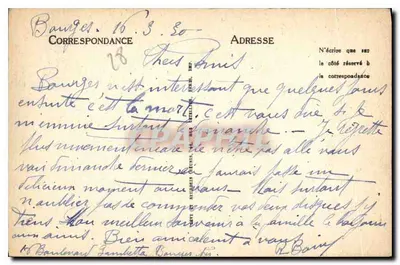 Bourges. 16.3.30
CORRESPONDANCE ADRESSE
28
Chers Amis
N'écrire que sur
le côté réservé à
la correspondance
Bourges est intéressant que quelques jours
ensuite c'est la mort. c'est vous dire si je
m'ennuie surtout dimanche. Je regrette
plus vivement encore de n'être pas allé vous
voir dimanche dernier. J'aurais passé un
délicieux moment avec vous. Mais surtout
n'oubliez pas de commander vos deux disques j'y
tiens. Mon meilleur souvenir à la famille
Bien amicalement à vous
Boulevard Gambetta Bourges